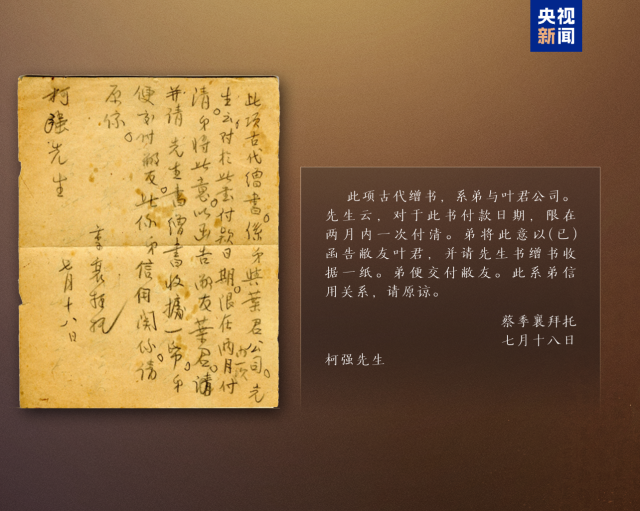 央视
新闻
此项古代缯书。系弟與葉君公司。先
生云对於此書付款日期。限在两月内一次付
清。弟将此意以函告敝友葉君。
并请 先生書缯書收據一帋。弟
便交付敝友。此係弟信用関係。请
原谅。
季襄拜托
七月十八日
柯强先生
此项古代缯书，系弟与叶君公司。
先生云，对于此书付款日期，限在
两月内一次付清。弟将此意以(已)
函告敝友叶君，并请先生书缯书收
据一纸。弟便交付敝友。此系弟信
用关系，请原谅。
蔡季襄拜托
七月十八日
柯强先生